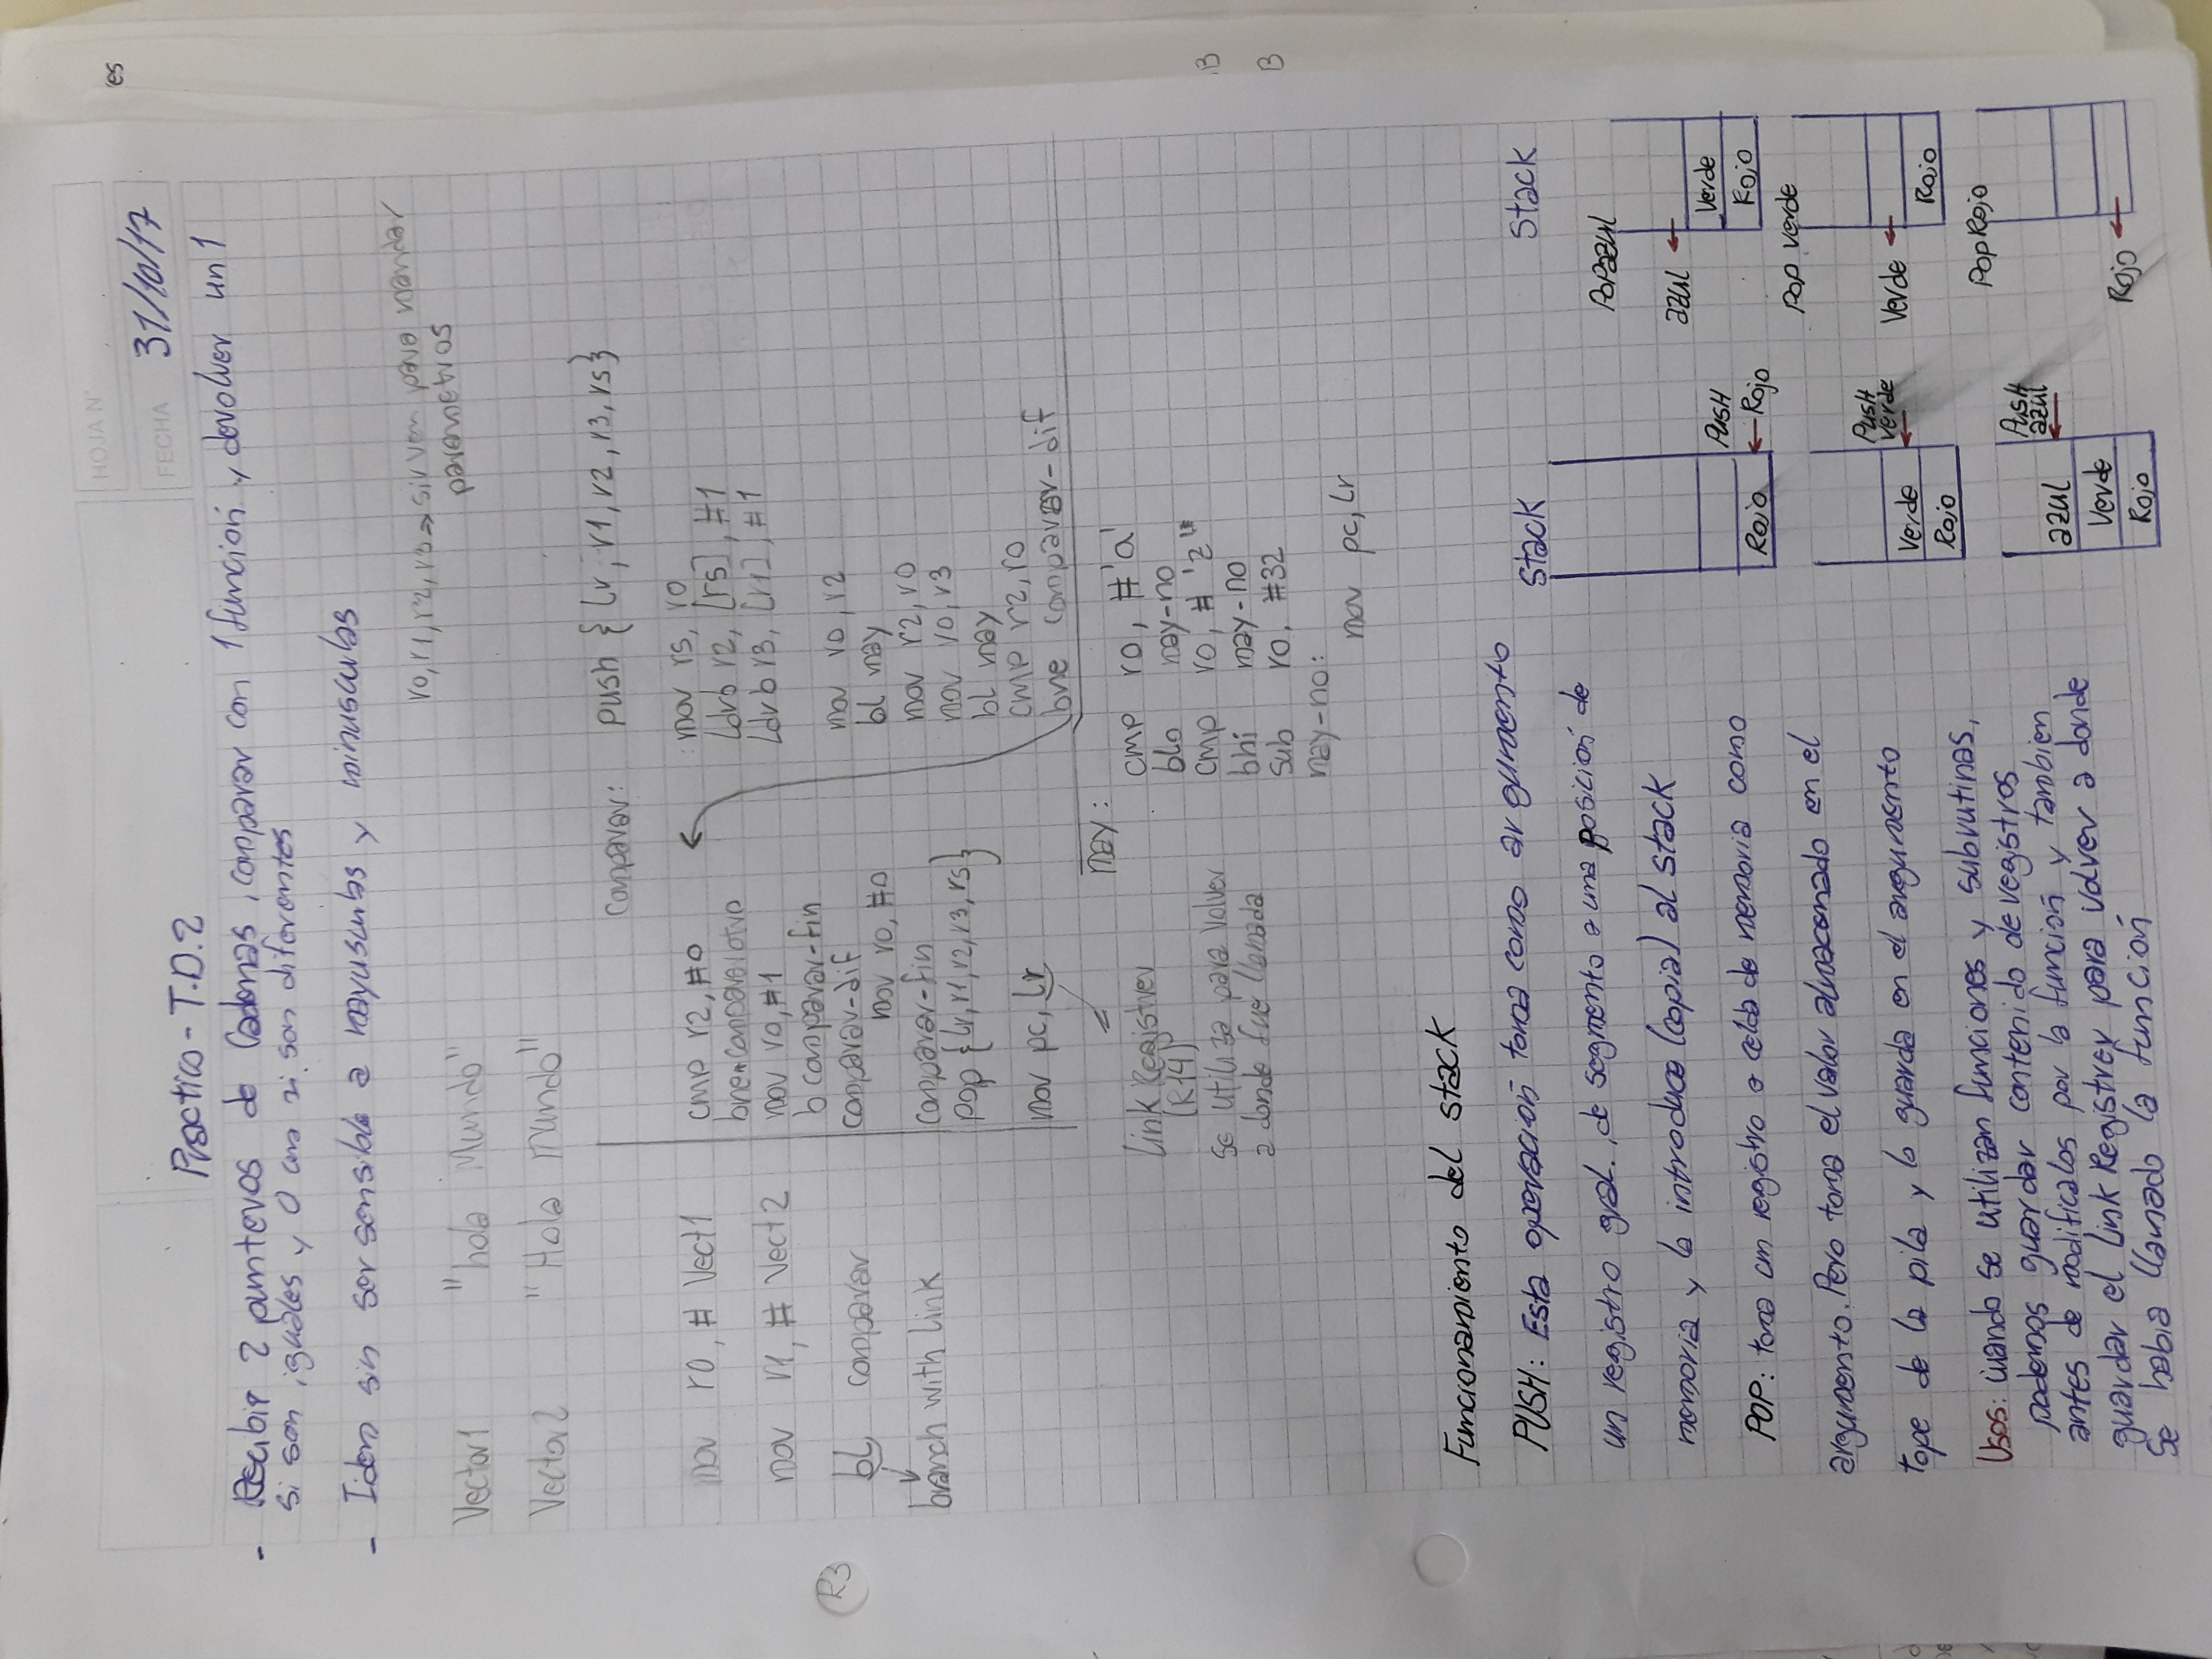 HOJA N°
FECHA 31/10/17
Practico - T.D.2
- Recibir 2 punteros de Cadenas, comparar con 1 función y devolver un 1
si son iguales y 0 si son diferentes
- Idem sin ser sensible a mayusculas y minusculas
r0, r1, r2, r3 → sirven para mandar
parametros
Vector1 "hola Mundo"
Vector2 "Hola mundo"
mov r0, # Vect1
mov r1, # Vect2
bl comparar
branch with link
R3
cmp r2, #0
bne comparar otro
mov r0, #1
b comparar-fin
comparar-dif
mov r0, #0
comparar-fin
pop {lr, r1, r2, r3, r5}
mov pc, lr
Link Registrer
(R14)
se utiliza para volver
a donde fue llamada
comparar: push {lr, r1, r2, r3, r5}
mov r5, r0
ldrb r2, [r5], #1
ldrb r3, [r1], #1
mov r0, r2
bl may
mov r2, r0
mov r0, r3
bl may
cmp r2, r0
bne comparar-dif
may:
cmp r0, #'a'
blo may-no
cmp r0, #'z'
bhi may-no
sub r0, #32
may-no:
mov pc, lr
Funcionamiento del stack
PUSH: Esta operación toma como argumento
un registro gral., de segmento o una posición de
memoria y lo introduce (copia) al stack
POP: toma un registro o celda de memoria como
argumento. Pero toma el valor almacenado en el
tope de la pila y lo guarda en el argumento
Usos: cuando se utilizan funciones y subrutinas,
podemos guardar contenido de registros
antes de modificalos por la función y tambien
guardar el Link Registrer para volver a donde
se habia llamado la función
Stack
PUSH
Rojo ← Rojo
Push
verde
Verde
Rojo
Push
azul
azul
Verde
Rojo
Stack
Pop azul
azul
Verde
Rojo
Pop verde
Verde
Rojo
Pop Rojo
Rojo
es
B
B